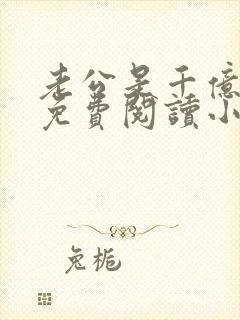 老公是千億
免費閱讀小
兔梔